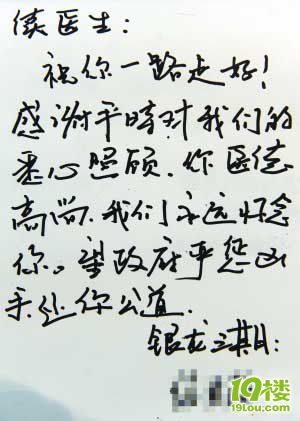 侯医生：
祝你一路走好！
感谢平时对我们的
悉心照顾．你医德
高尚．我们永远怀念
你。望政府严惩凶
手还你公道．
银龙三期：
19楼
19lou.com